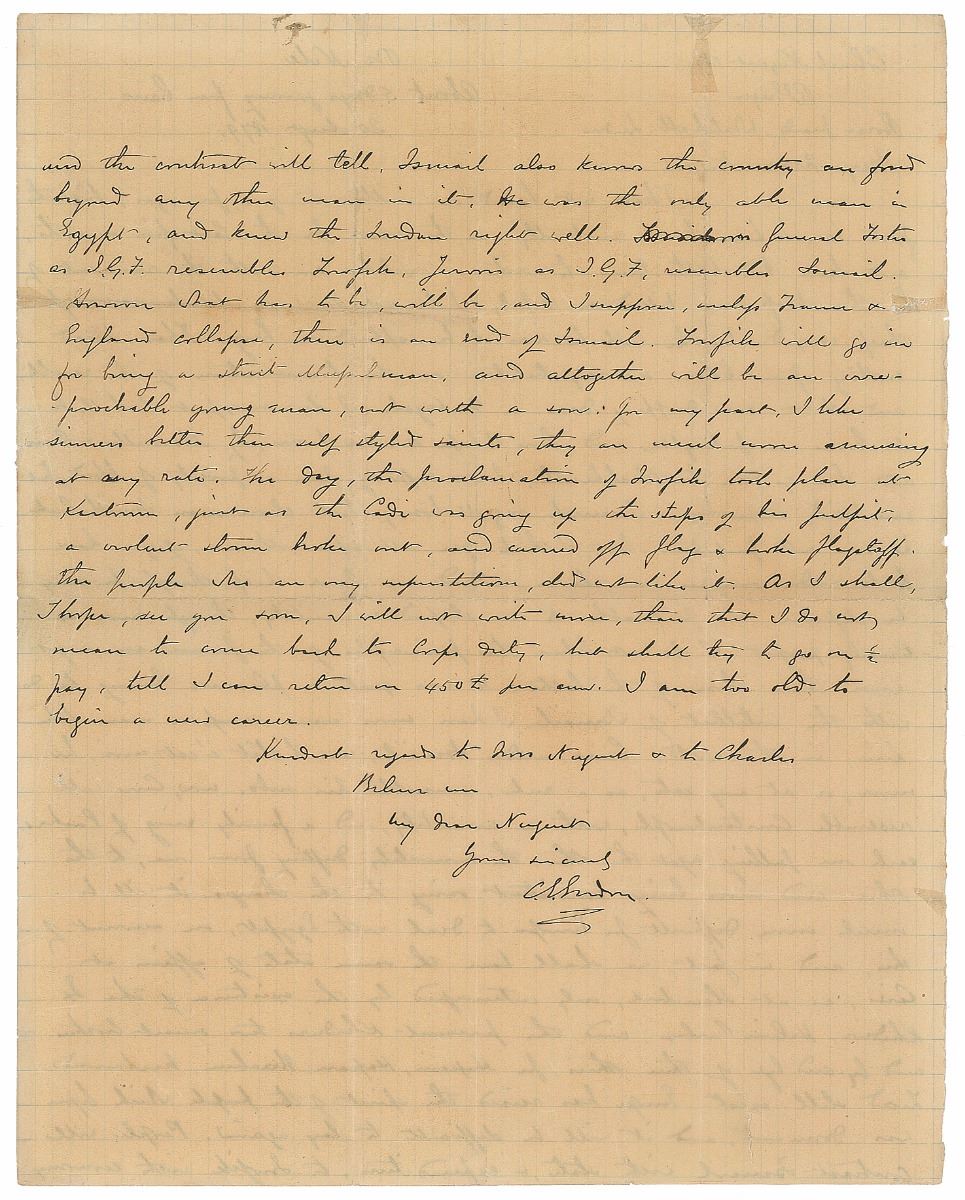 and the contrast will tell. Ismail also knows the country an fond
beyond any other man in it. He was the only able man in
Egypt, and knew the Soudan right well. General
as I.G.F. resembles Towfik, Jervois as I.G.F, resembles Ismail.
However what has to be, will be, and I suppose, unless France &
England collapse, there is an end of Ismail. Towfik will go in
for being a strict Mussulman, and altogether will be an irre-
-proachable young man, not worth a sou: for my part, I like
sinners better than self styled saints, they are much more amusing
at any rate. The day, the proclamation of Towfik took place at
Kartoum, just as the Cadi was going up the steps of his pulpit,
a violent storm broke out, and carried off flag & broke flagstaff.
the people who are very superstitious, did not like it. As I shall,
I hope, see you soon, I will not write more, than that I do not
mean to come back to Corps duty, but shall try to go on ½
pay, till I can retire on 450£ per ann. I am too old to
begin a new career.
Kindest regards to Mrs Nugent & to Charles
Believe me
My dear Nugent
Yours sincerely
C.G. Gordon.